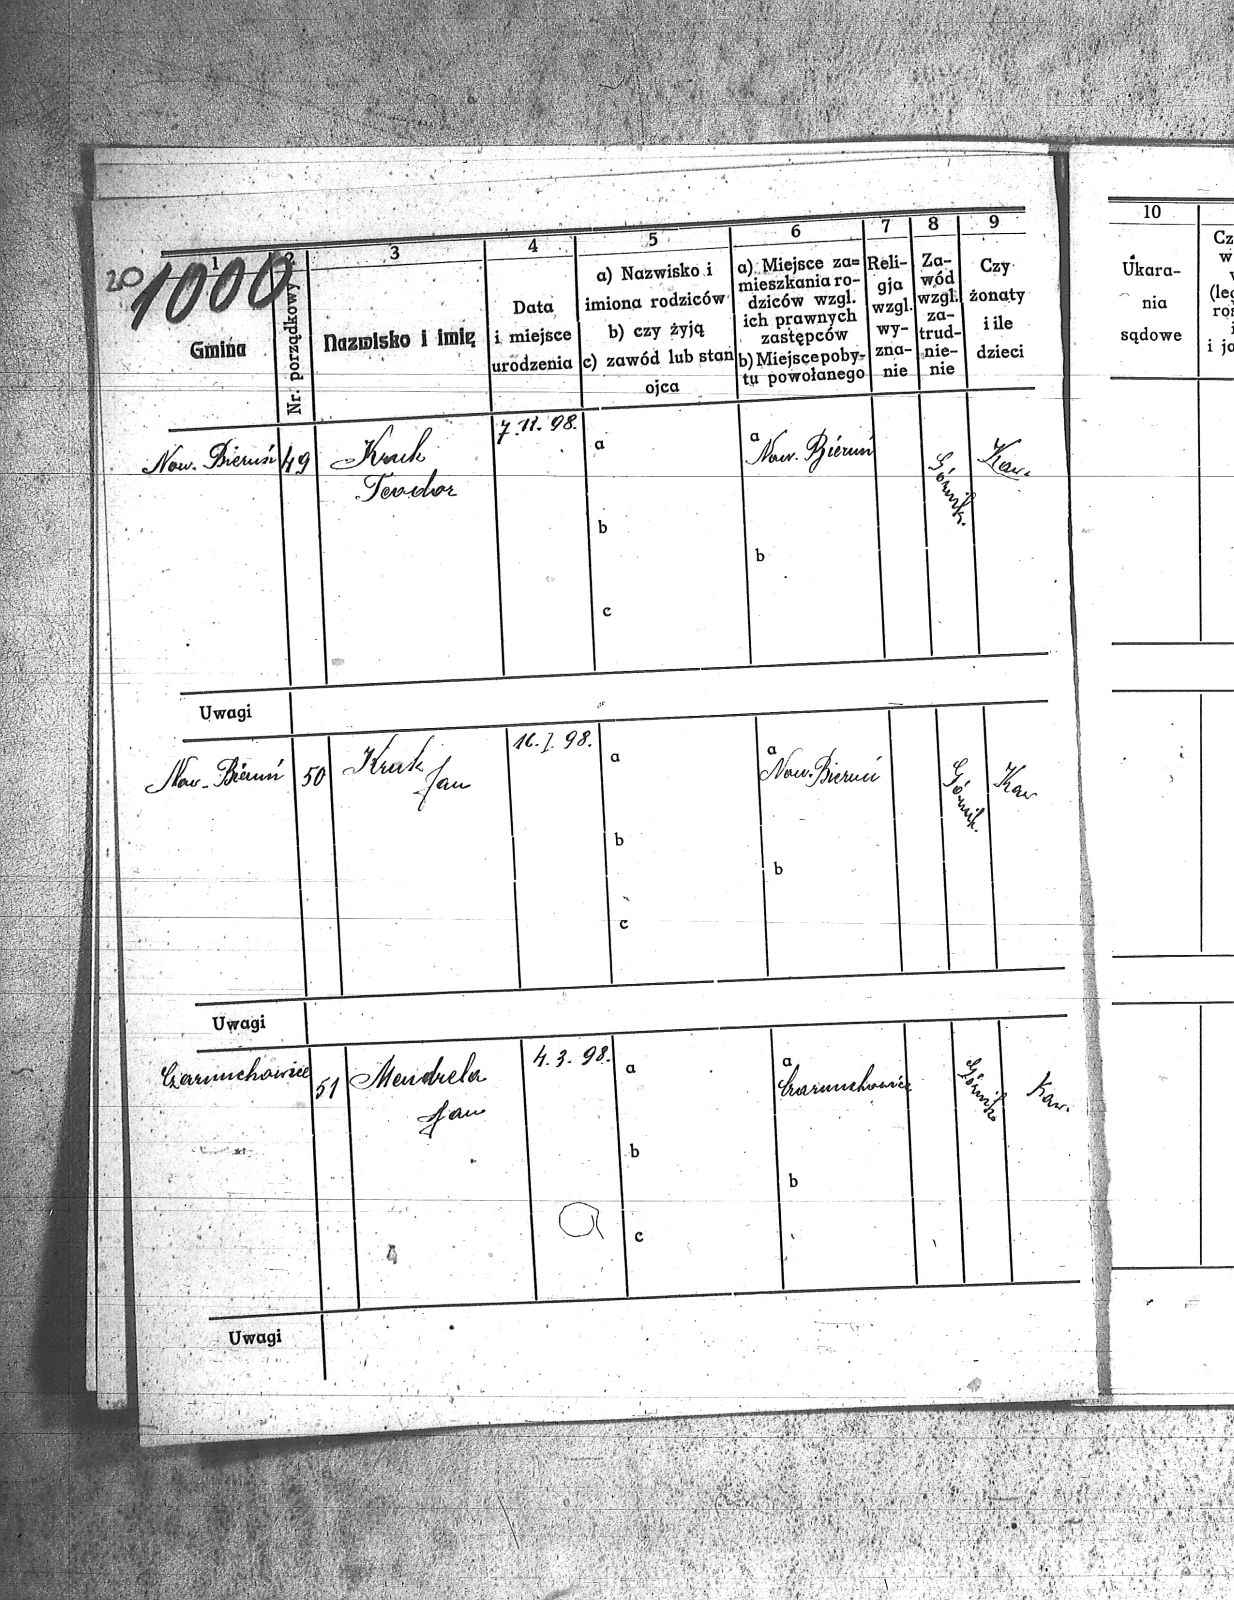 20
1000
1
2
3
4
5
6
7
8
9
10
Gmina
Nr. porządkowy
Nazwisko i imię
Data
i miejsce
urodzenia
a) Nazwisko i
imiona rodziców
b) czy żyją
c) zawód lub stan
ojca
a) Miejsce za=
mieszkania ro-
dziców wzgl.
ich prawnych
zastępców
b) Miejsce poby-
tu powołanego
Reli-
gja
wzgl.
wy-
zna-
nie
Za-
wód
wzgl.
za-
trud-
nie-
nie
Czy
żonaty
i ile
dzieci
Ukara-
nia
sądowe
Now. Bieruń
49
Kruk
Teodor
7.11.98.
a
b
c
a
Now. Bieruń
b
Górnik.
Kaw.
Uwagi
Now. Bieruń
50
Kruk
Jan
16.I.98.
a
b
c
a
Now. Bieruń
b
Górnik.
Kaw
Uwagi
Czarnuchowice
51
Mendrela
Jan
4.3.98.
a
b
c
a
Czarnuchowice
b
Górnik
Kaw.
Uwagi